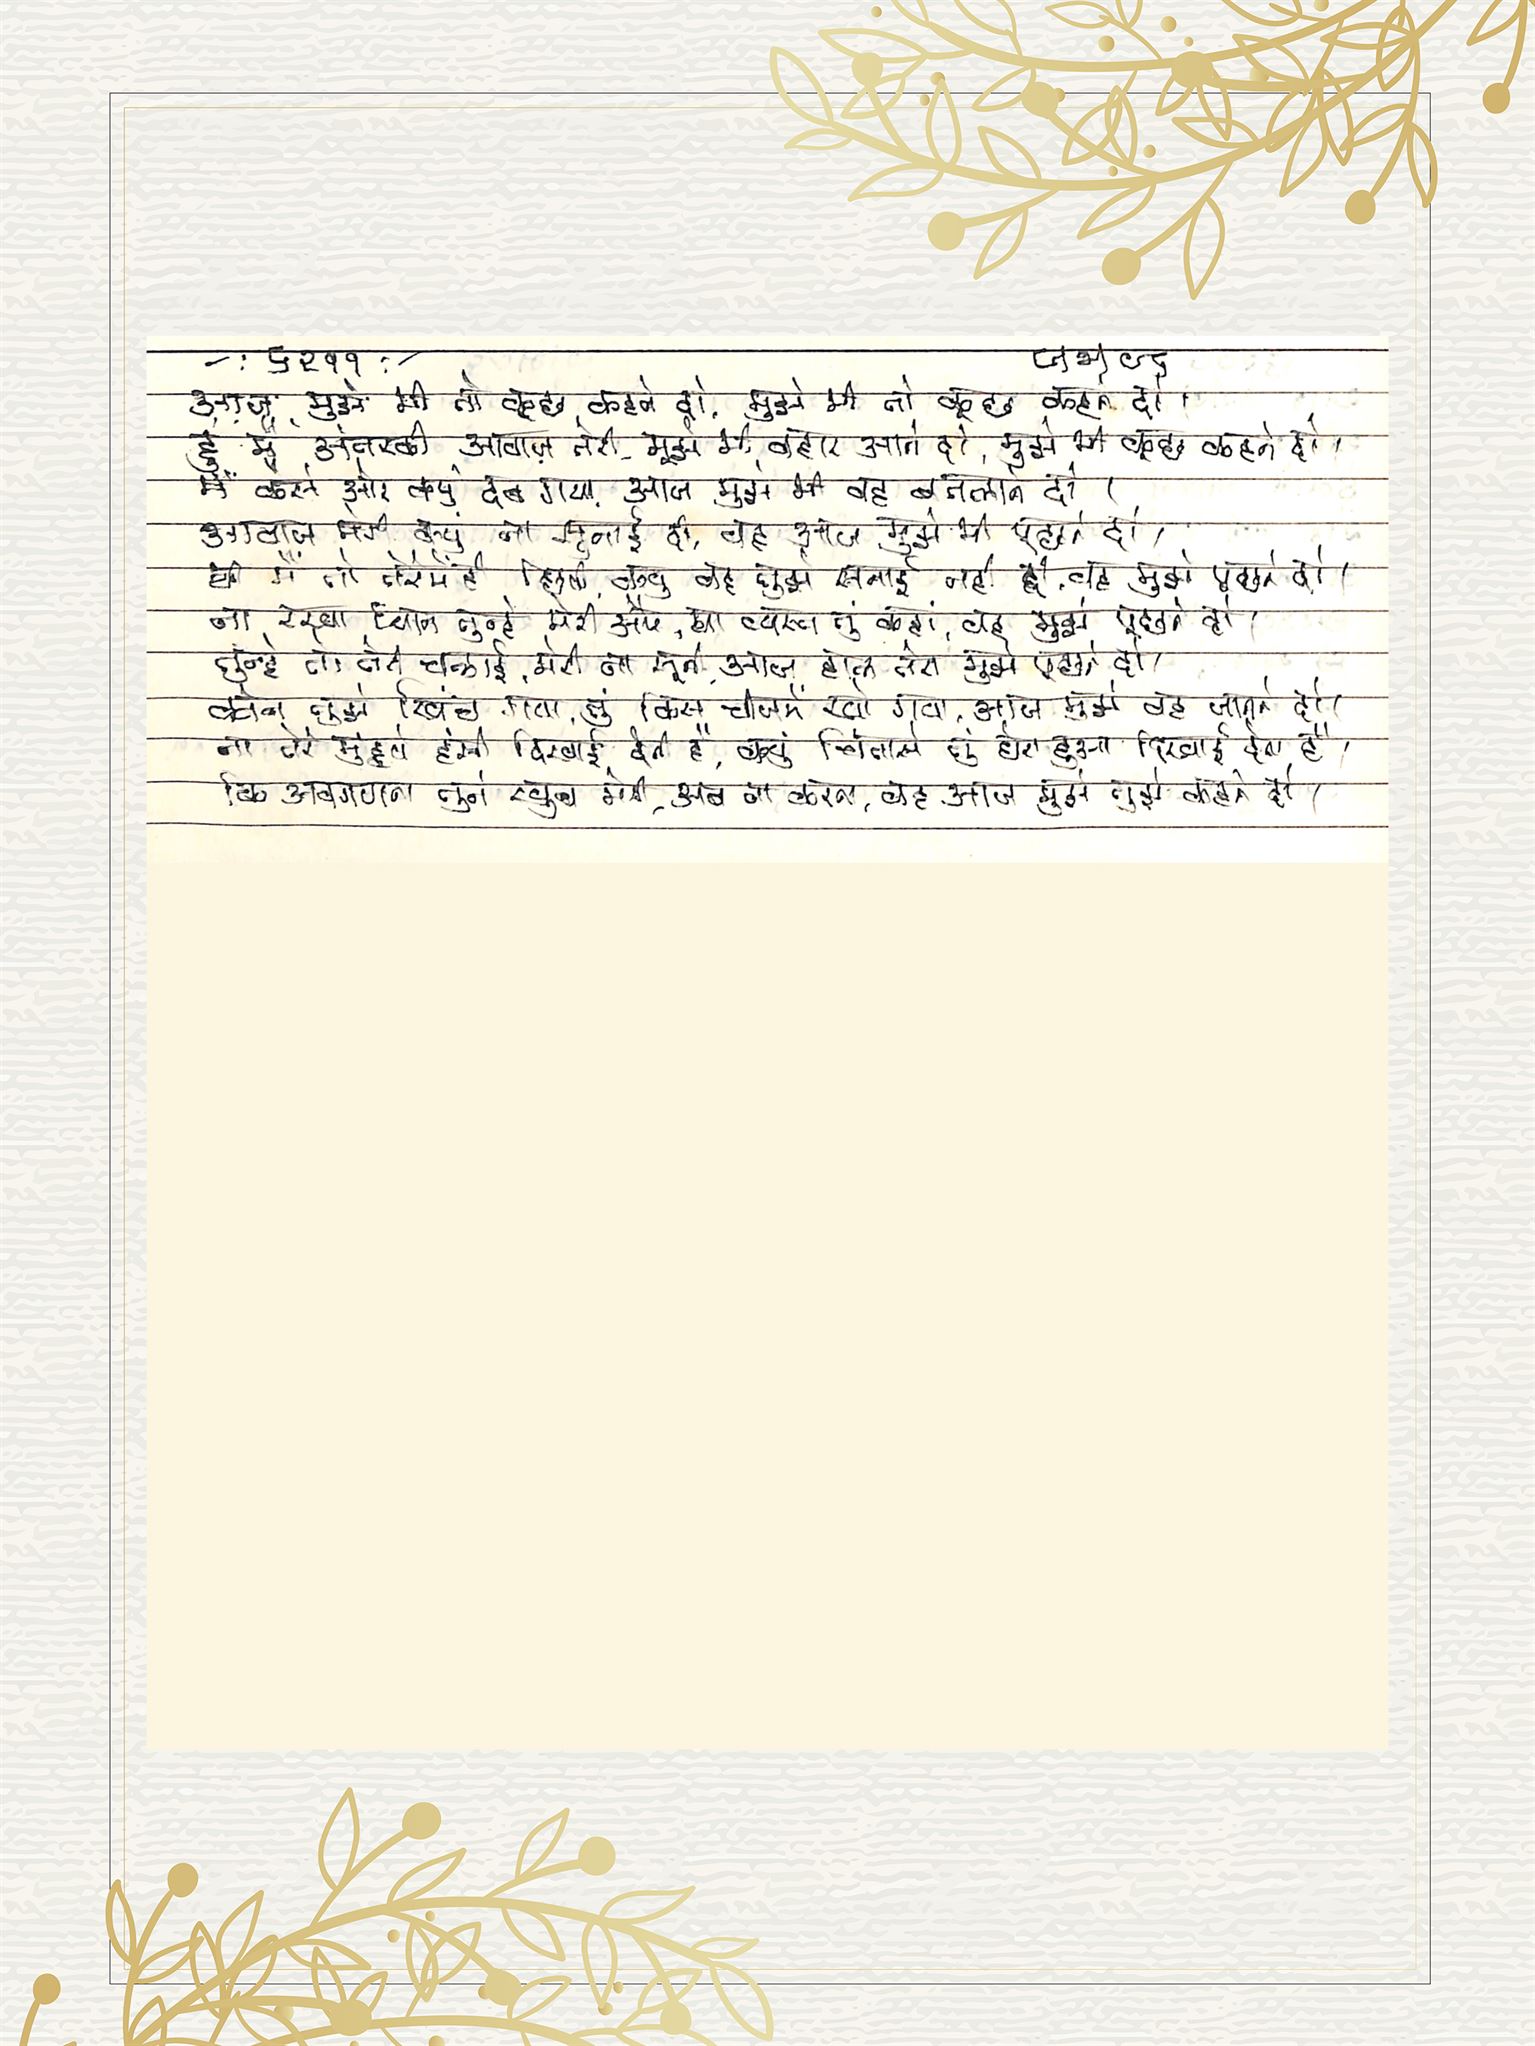 -: ६२११ :-
आज, मुझे भी तो कूछ कहने दो, मुझे भी तो कूछ कहने दो।
हुं मैं अंतरकी आवाज़ तेरी, मूझे भी बहार आने दो, मुझे भी कूछ कहने दो।
मैं कैसे और क्युं दब गया, आज मुझे भी वह बतलाने दो।
आवाज मेरी क्युं ना सूनाई दी, वह आज मुझे भी पूछने दो।
मैं तो तेरेमें ही क्युं वह तुझे सुनाई नही दी, वह मुझे पूछने दो।
ना रख्खा ध्यान तुन्हे मेरी और, था व्यस्त तुं कहां, वह मुझे पूछने दो।
तुन्हे तो तेरी चलाई, मेरी ना सूनी, आज हाल तेरा मुझे पूछने दो।
कौन तुझे खिंच गया, तुं किस चीजमें खो गया, आज मुझे वह जानने दो।
ना तेरे मुंहपे हंसी दिखाई देती है, क्युं चिंतासे तुं घेरा हुआ दिखाई देता है,
कि अवगणना तुने खुब मेरी, अब ना करना, वह आज मुझे तुझे कहने दो।